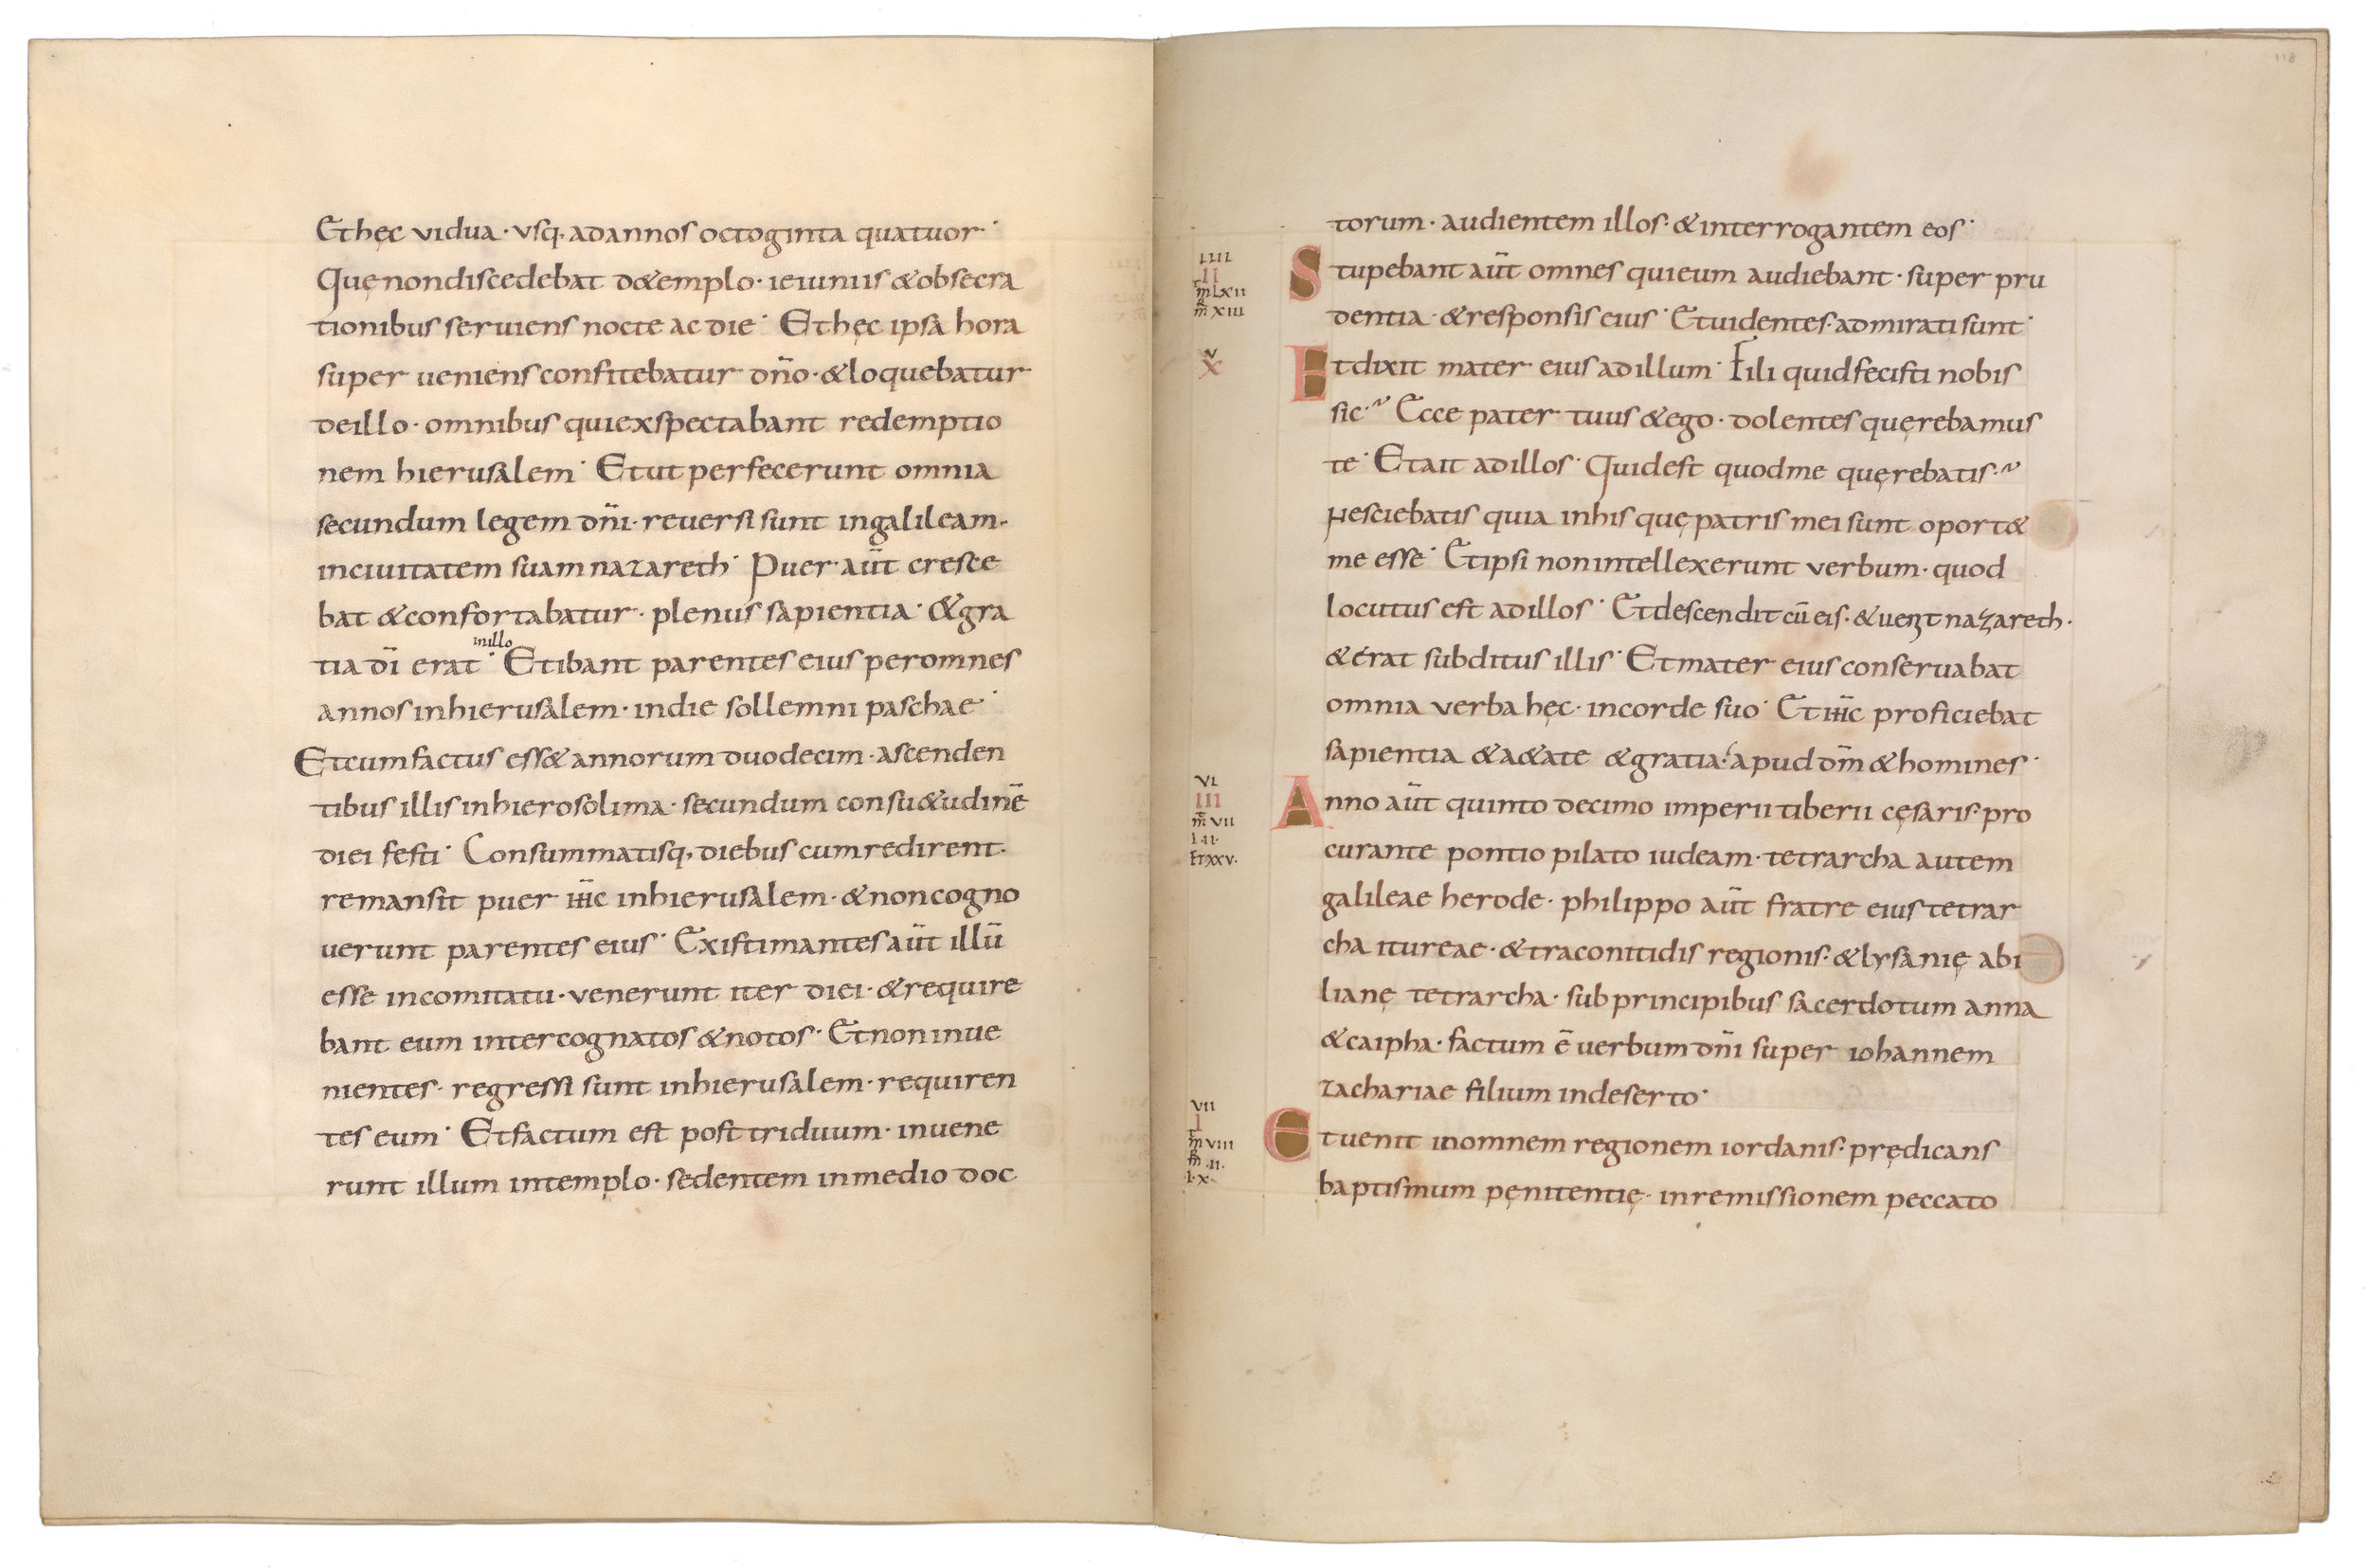 Et hęc vidua · vsq; ad annos octoginta quatuor ·
Quę non discedebat d&emplo · ieiuniis & obsecra
tionibus seruiens nocte ac die · Et hęc ipsa hora
super ueniens confitebatur dn̄o · & loquebatur
de illo · omnibus qui exspectabant redemptio
nem hierusalem · Et ut perfecerunt omnia
secundum legem dn̄i · reuersi sunt in galileam ·
in ciuitatem suam nazareth · Puer aūt cresce
bat & confortabatur · plenus sapientia · & gra
in illo
tia dī erat · Et ibant parentes eius per omnes
annos in hierusalem · in die sollemni paschae ·
Et cum factus ess& annorum duodecim · ascenden
tibus illis in hierosolima · secundum consu&udinē
diei festi · Consummatisq; diebus cum redirent ·
remansit puer iħc in hierusalem · & non cogno
uerunt parentes eius · Existimantes aūt illū
esse in comitatu · venerunt iter diei · & require
bant eum inter cognatos & notos · Et non inue
nientes · regressi sunt in hierusalem · requiren
tes eum · Et factum est post triduum · inuene
runt illum in templo · sedentem in medio doc
118
torum · audientem illos · & interrogantem eos ·
IIII
II
m̄ LXII
m̄ XIII
Stupebant aūt omnes qui eum audiebant · super pru
dentia · & responsis eius · Et uidentes · admirati sunt ·
V
X
Et dixit mater eius ad illum · Fili quid fecisti nobis
sic · Ecce pater tuus & ego · dolentes quęrebamus
te · Et ait ad illos · Quid est quod me quęrebatis ·
Nesciebatis quia in his quę patris mei sunt oport&
me esse · Et ipsi non intellexerunt verbum · quod
locutus est ad illos · Et descendit cū eis · & uenit nazareth ·
& erat subditus illis · Et mater eius conseruabat
omnia verba hęc · in corde suo · Et iħc proficiebat
sapientia & a&ate & gratia · apud dm̄ & homines ·
VI
III
m̄ VII
I · II ·
Et XXV ·
Anno aūt quinto decimo imperii tiberii cęsaris · pro
curante pontio pilato iudeam · tetrarcha autem
galileae herode · philippo aūt fratre eius tetrar
cha itureae · & traconitidis regionis · & lysanię abi
lianę tetrarcha · sub principibus sacerdotum anna
& caipha · factum ē uerbum dn̄i super iohannem
zachariae filium in deserto ·
VII
I
m̄ VIII
m̄ · II ·
I · X ·
Et uenit in omnem regionem iordanis · prędicans
baptismum pęnitentię · in remissionem peccato